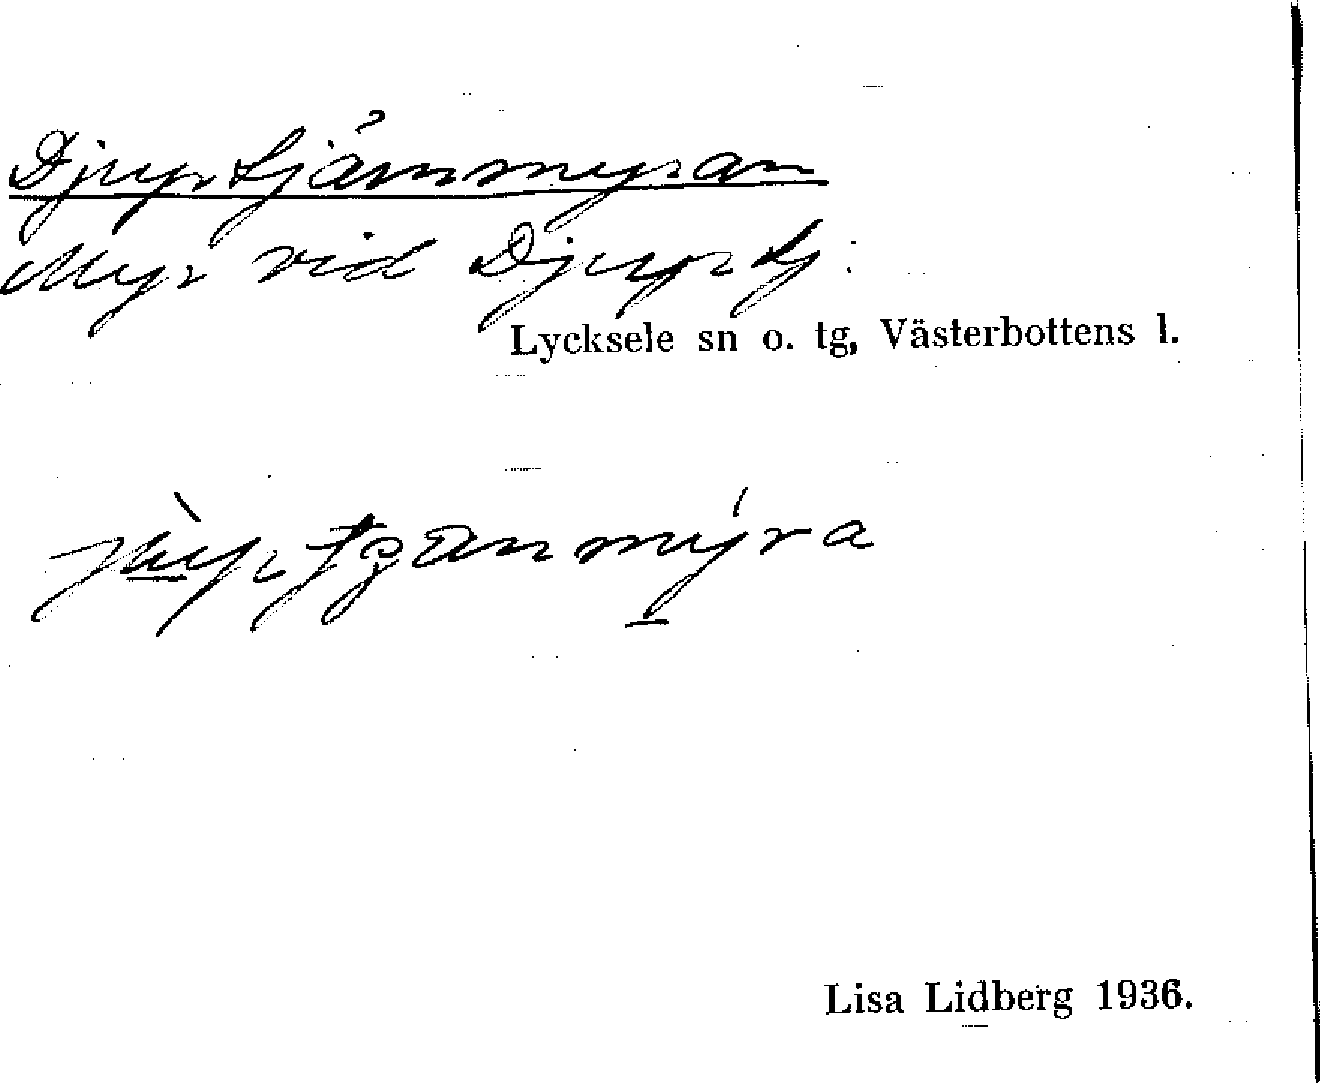 Djuptjärnmyran
Myr vid Djuptj.
Lycksele sn o. tg, Västerbottens l.
Lisa Lidberg 1936.